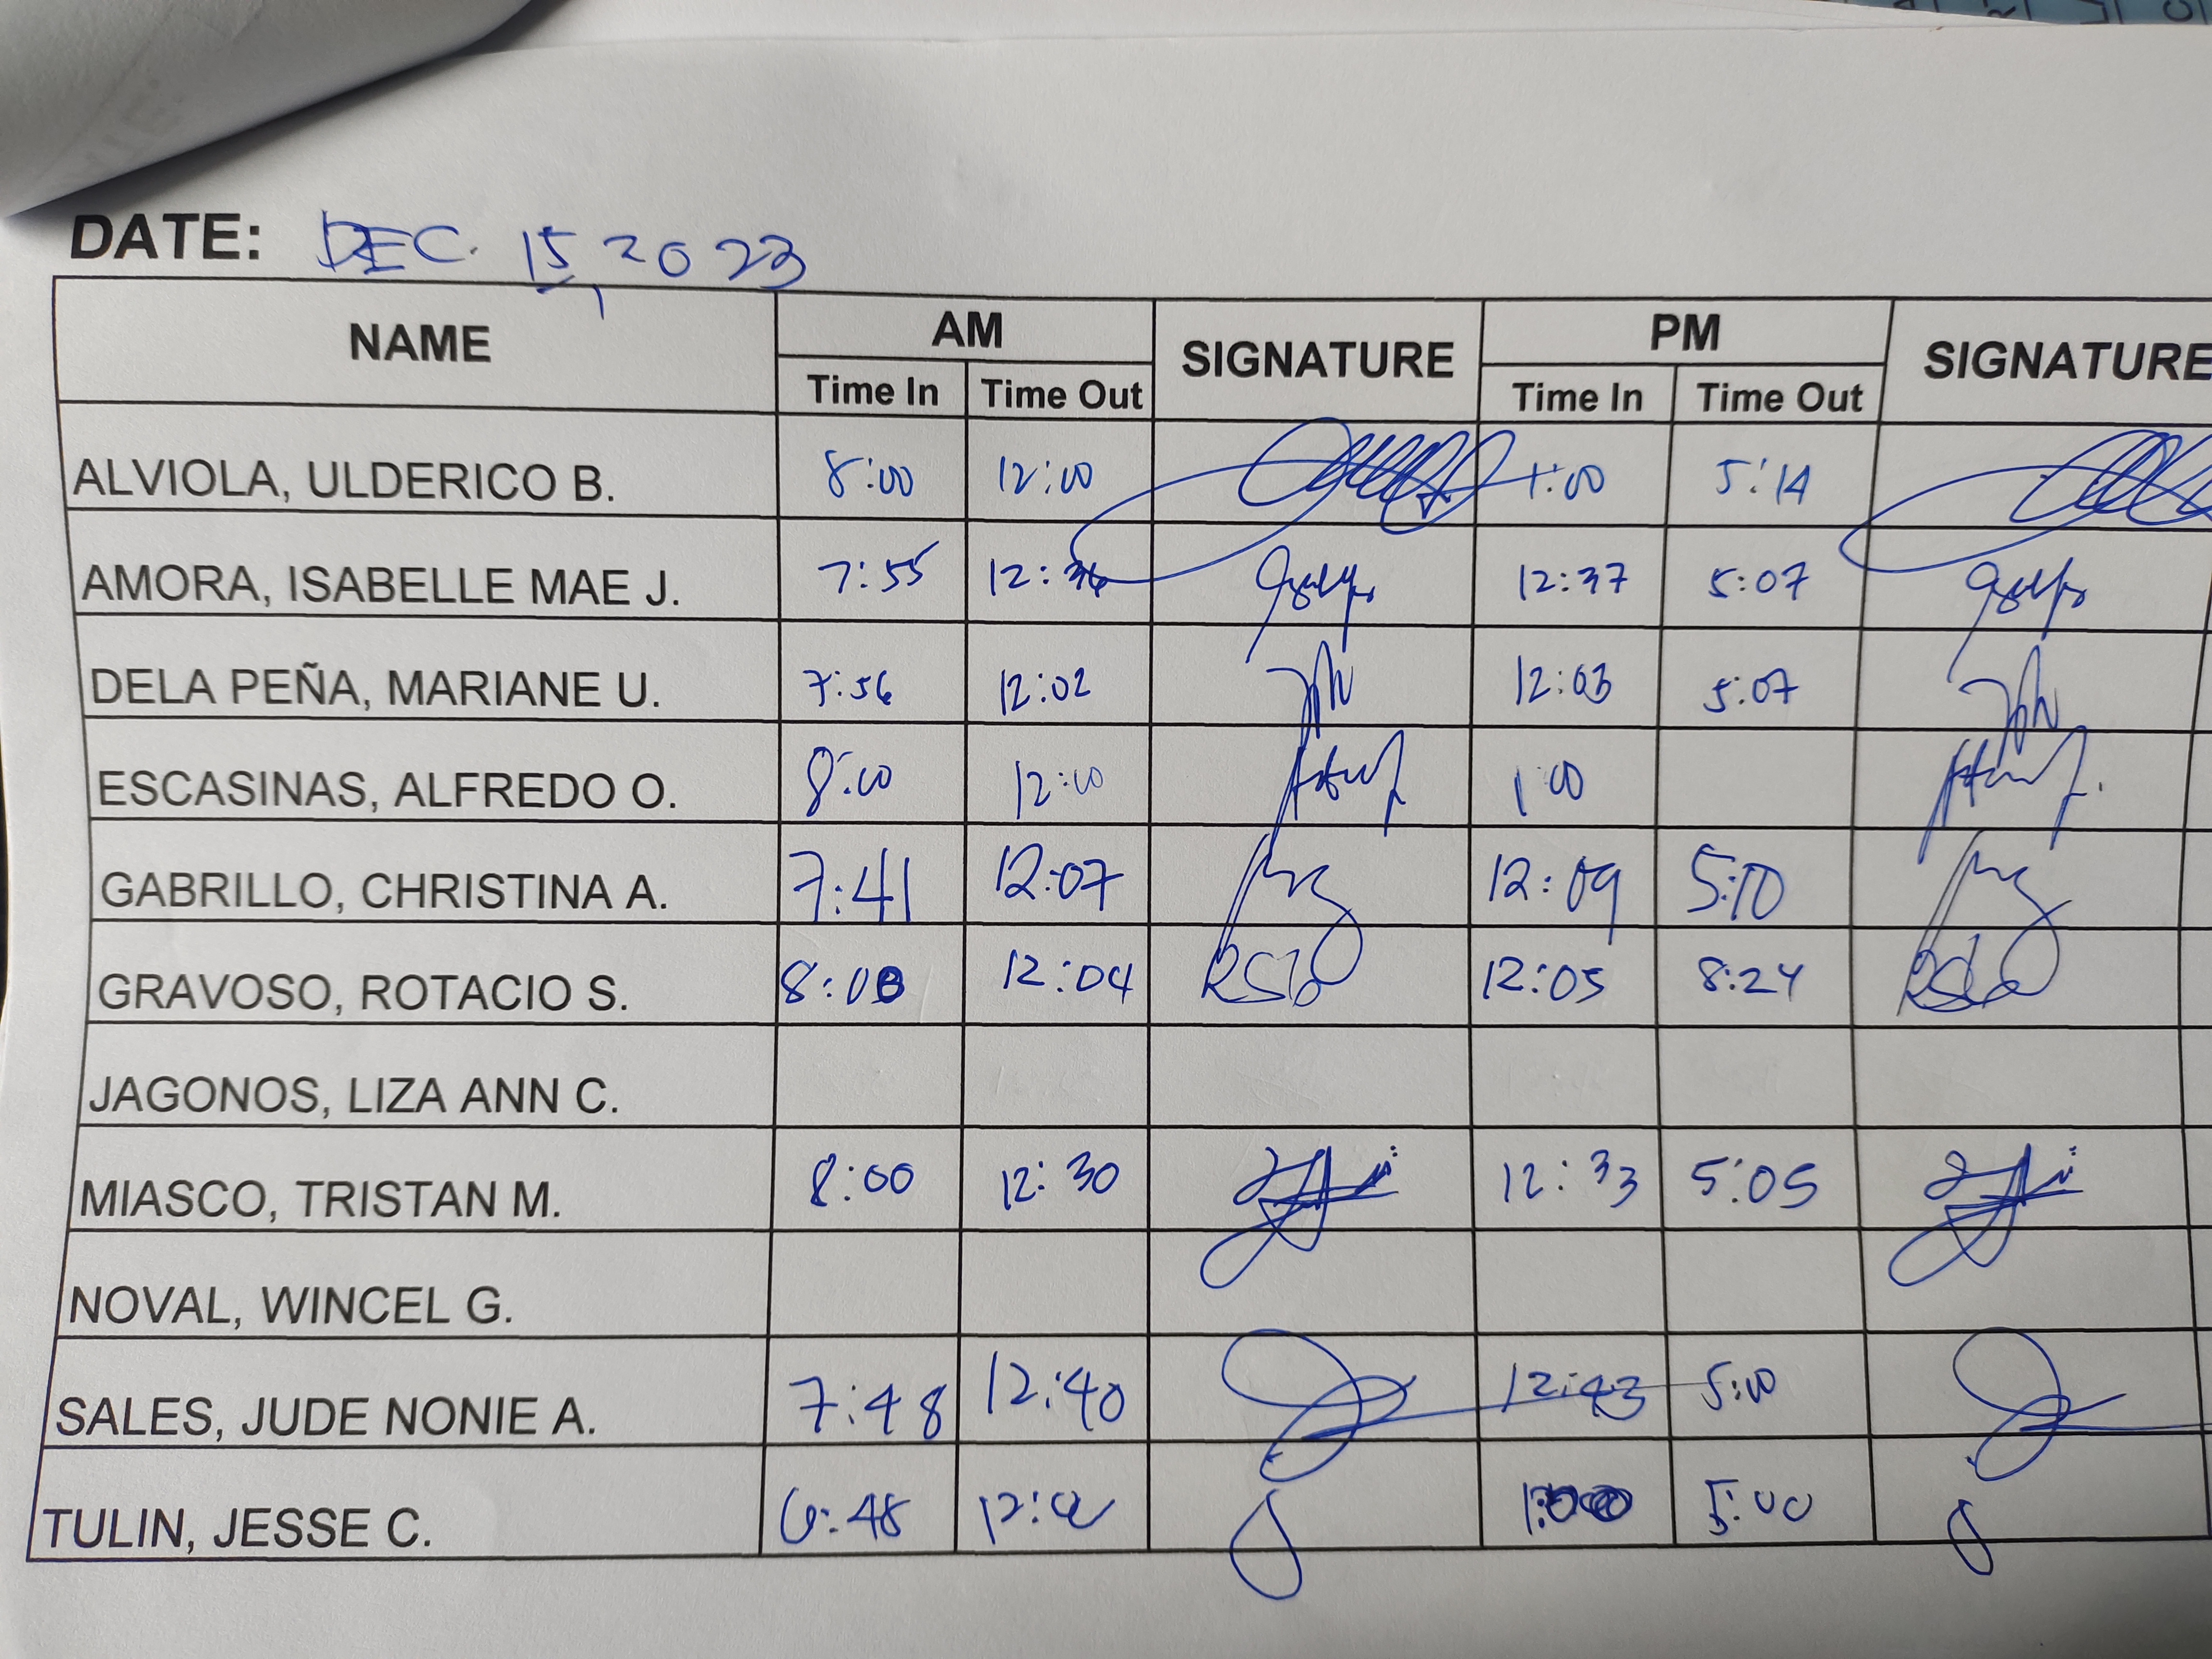 DATE: DEC. 15, 2023
NAME AM SIGNATURE PM SIGNATURE
Time In Time Out Time In Time Out
ALVIOLA, ULDERICO B. 8:00 12:00 1:00 5:14
AMORA, ISABELLE MAE J. 7:55 12:36 12:37 5:07
DELA PEÑA, MARIANE U. 7:56 12:02 12:03 5:07
ESCASINAS, ALFREDO O. 8:00 12:00 1:00
GABRILLO, CHRISTINA A. 7:41 12:07 12:09 5:10
GRAVOSO, ROTACIO S. 8:00 12:04 12:05 8:24
JAGONOS, LIZA ANN C.
MIASCO, TRISTAN M. 8:00 12:30 12:33 5:05
NOVAL, WINCEL G.
SALES, JUDE NONIE A. 7:48 12:40 12:43 5:00
TULIN, JESSE C. 6:48 5:00